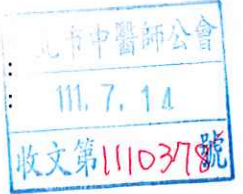 北市中醫師公會
111. 7. 14
收文第1110378號